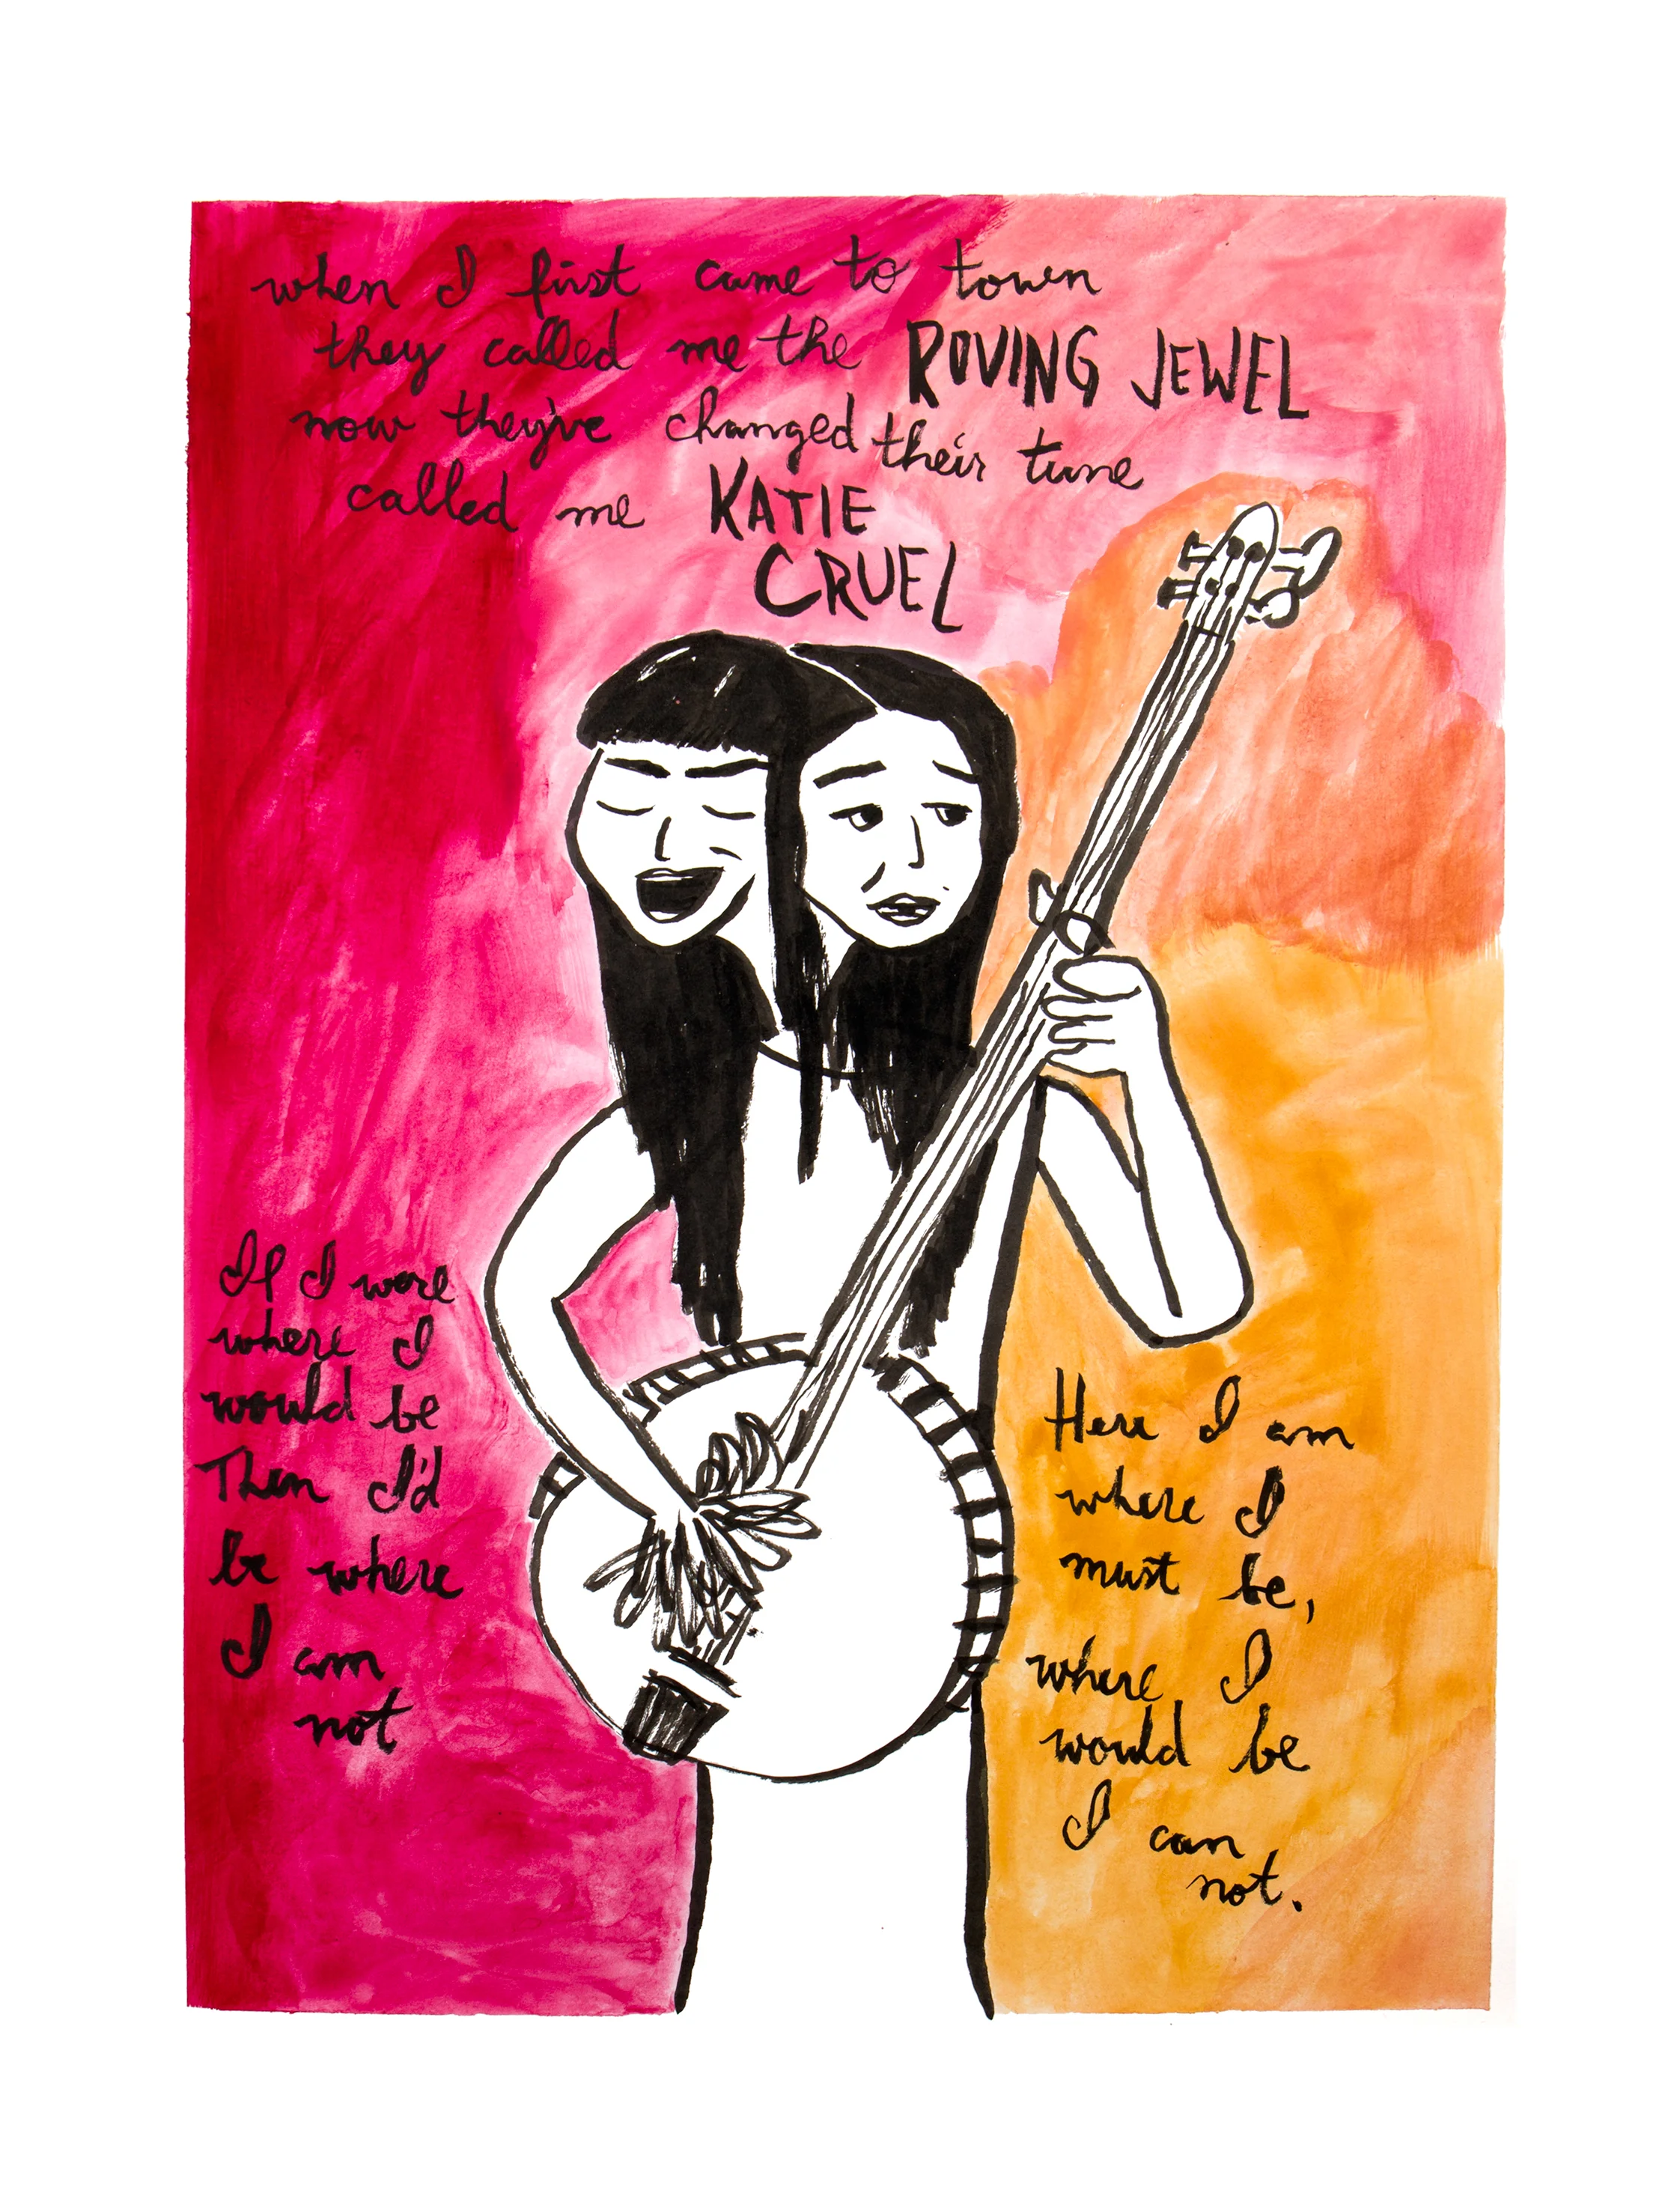 when I first came to town
they called me the ROVING JEWEL
now they've changed their tune
called me KATIE
CRUEL
If I were
where I
would be
Then I'd
be where
I am
not
Here I am
where I
must be,
where I
would be
I can
not.